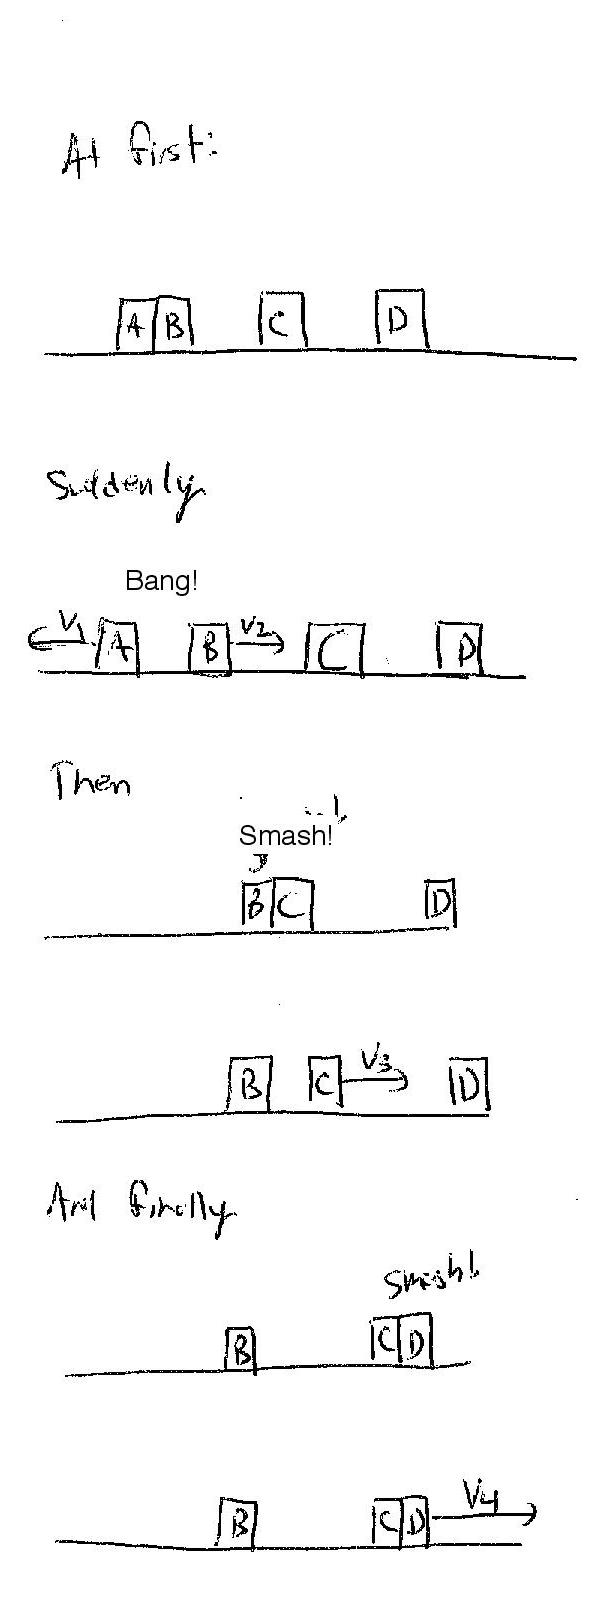 At first:
A B C D
Suddenly
Bang!
V1 A B V2 C D
Then
Smash!
B C D
B C V3 D
And finally
Smash!
B C D
B C D V4